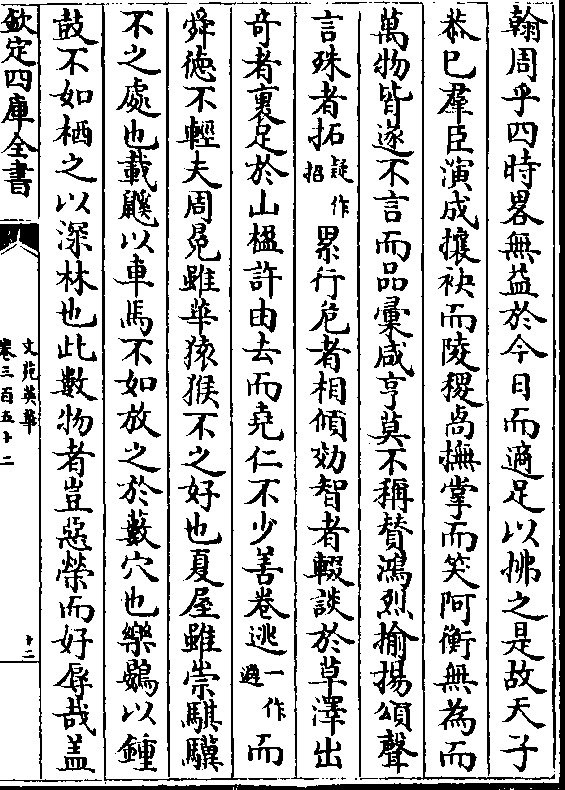 翰周乎四時畧無益於今日而適足以拂之是故天子
恭已羣臣演成攘袂而陵稷卨撫掌而笑阿衡無為而
萬物皆遂不言而品彚咸亨莫不稱賛鴻烈揄揚頌聲
言殊者拓疑作招累行危者相傾効智者輟談於草澤出
奇者裹足於山楹許由去而堯仁不少善卷逃一作遁而
舜徳不輕夫周冕雖華猿猴不之好也夏屋雖崇騏驥
不之處也載鼷以車馬不如放之於藪穴也樂鷃以鍾
鼓不如栖之以深林也此數物者豈惡榮而好辱哉盖
欽定四庫全書
文苑英華
卷三百五十二
十二